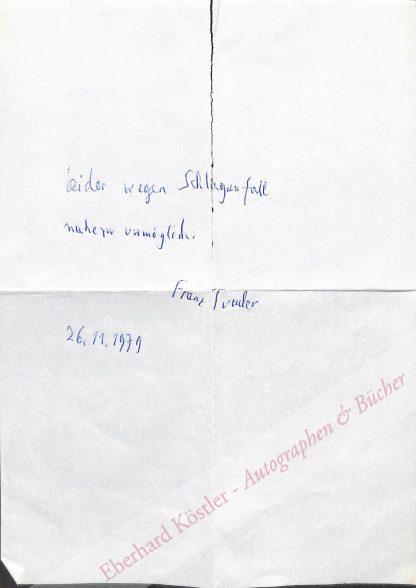 leider wegen Schlaganfall
nahezu unmöglich.
Franz Tumler
26.11.1979
Eberhard Köstler - Autographen & Bücher